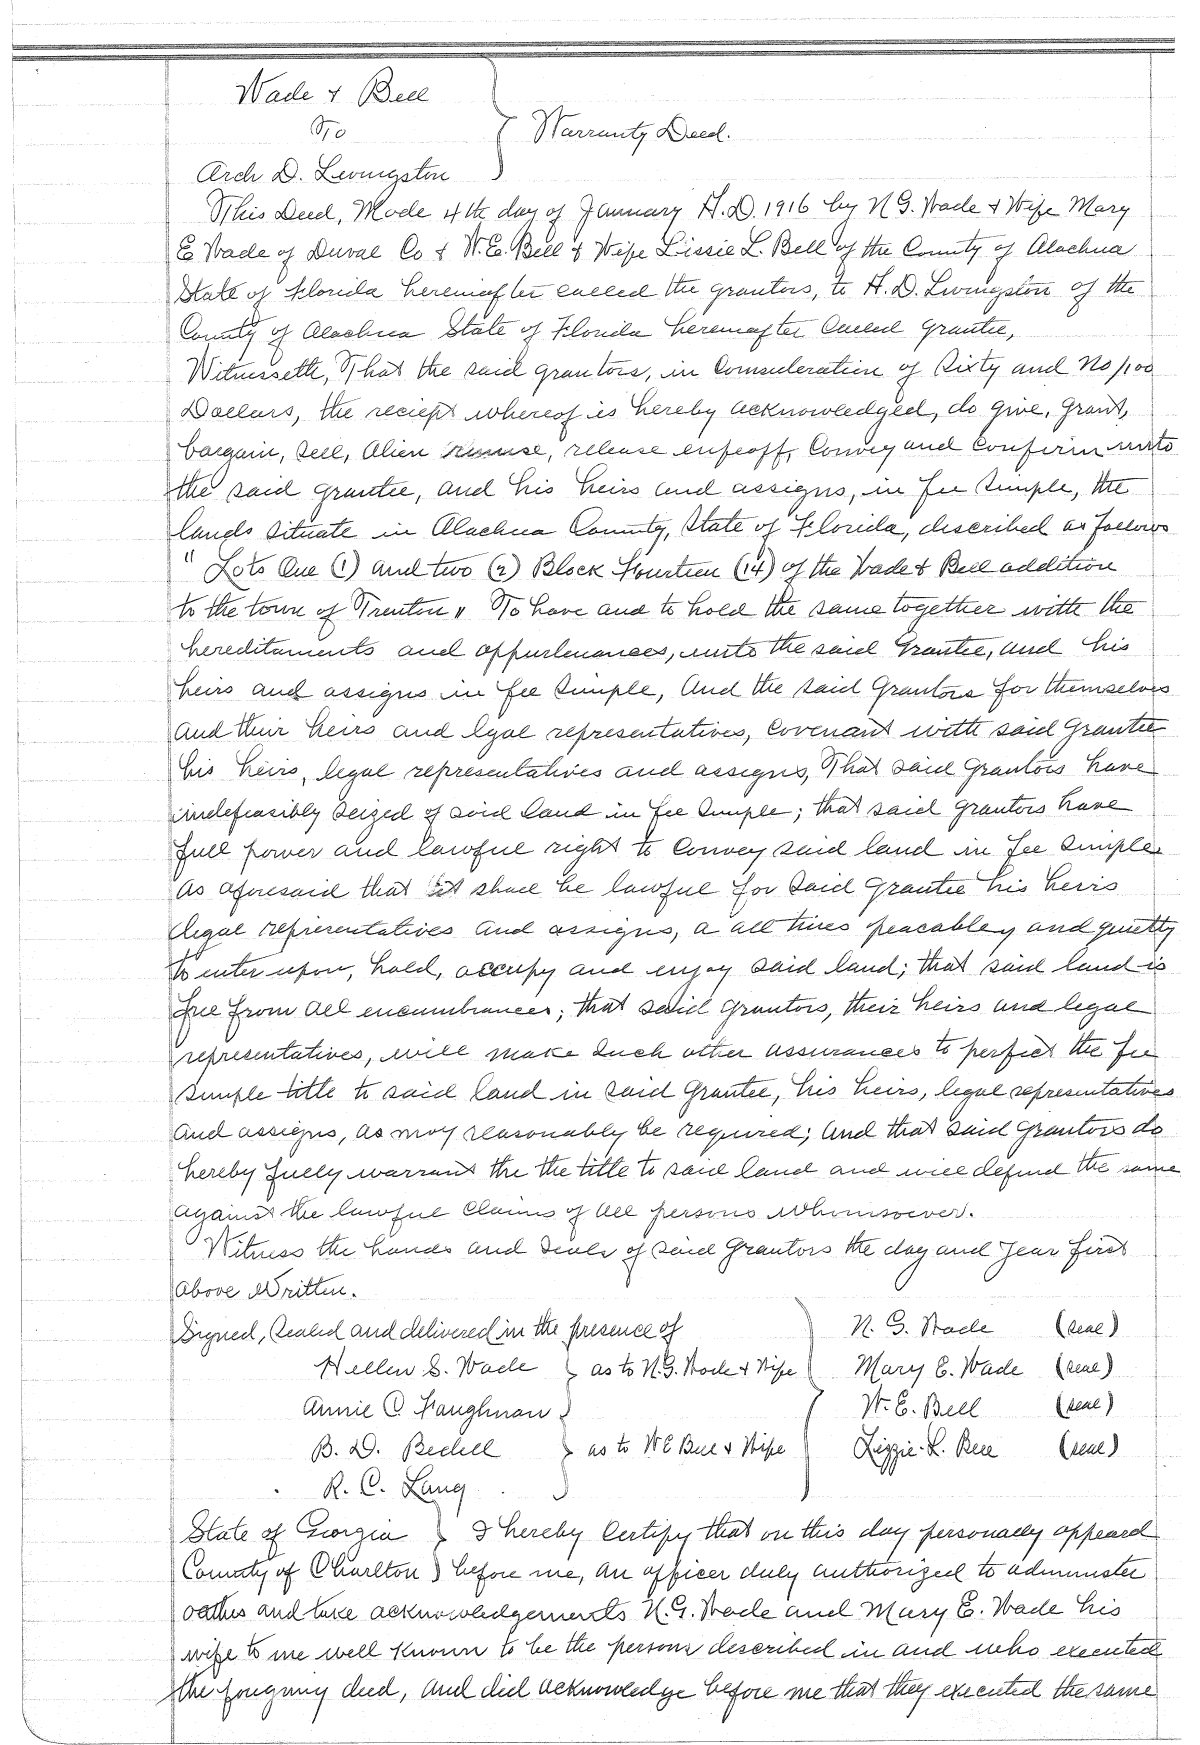 Wade & Bell
To
Warranty Deed.
Arch D. Livingston
This Deed, Made 4th day of January A.D. 1916 by N G. Wade & Wife Mary
E Wade of Duval Co & W.E. Bell & Wife Lissie L. Bell of the County of Alachua
State of Florida hereinafter called the grantors, to A. D. Livingston of the
County of Alachua State of Florida hereinafter Called grantee,
Witnesseth, That the said grantors, in Consideration of Sixty and No/100
Dollars, the reciept whereof is hereby acknowledged, do give, grant,
bargain, sell, Alien remise, release enfeoff, Convey and Confirm unto
the said grantee, and his heirs and assigns, in fee simple, the
lands situate in Alachua County, State of Florida, described as follows
" Lots One (1) and two (2) Block Fourteen (14) of the Wade & Bell addition
to the town of Trenton " To have and to hold the same together with the
hereditaments and appurtenances, unto the said Grantee, and his
heirs and assigns in fee simple, And the said Grantors for themselves
and their heirs and lgal representatives, Covenant with said Grantee
his heirs, legal representatives and assigns, That said Grantors have
indefeasibly seized of said land in fee simple; that said grantors have
full power and lawful right to Convey said land in fee simple
as aforesaid that it shall be lawful for said Grantee his heirs
legal representatives and assigns, a all times peacabley and quietly
to enter upon, hold, occupy and enjoy said land; that said land is
free from all encumbrances; that said grantors, their heirs and legal
representatives, will make such other assurances to perfect the fee
simple title to said land in said Grantee, his heirs, legal representatives
and assigns, as may reasonably be required; and that said Grantors do
hereby fully warrant the the title to said land and will defend the same
against the lawful claims of all persons whomsoever.
Witness the hands and seals of said Grantors the day and year first
above Written.
Signed, Sealed and delivered in the presence of N. G. Wade (seal)
Hellen S. Wade as to N.G. Wade & Wife Mary E. Wade (seal)
Annie C. Faughman W. E. Bell (seal)
B. D. Bechell as to W E Bell & Wife Lizzie L. Bell (seal)
R. C. Lang
State of Georgia I hereby Certify that on this day personally appeared
County of Charlton before me, an officer duly authorized to administer
oathes and take acknowledgements N.G. Wade and Mary E. Wade his
wife to me well known to be the persons described in and who executed
the forgoing deed, and did acknowledge before me that they executed the same